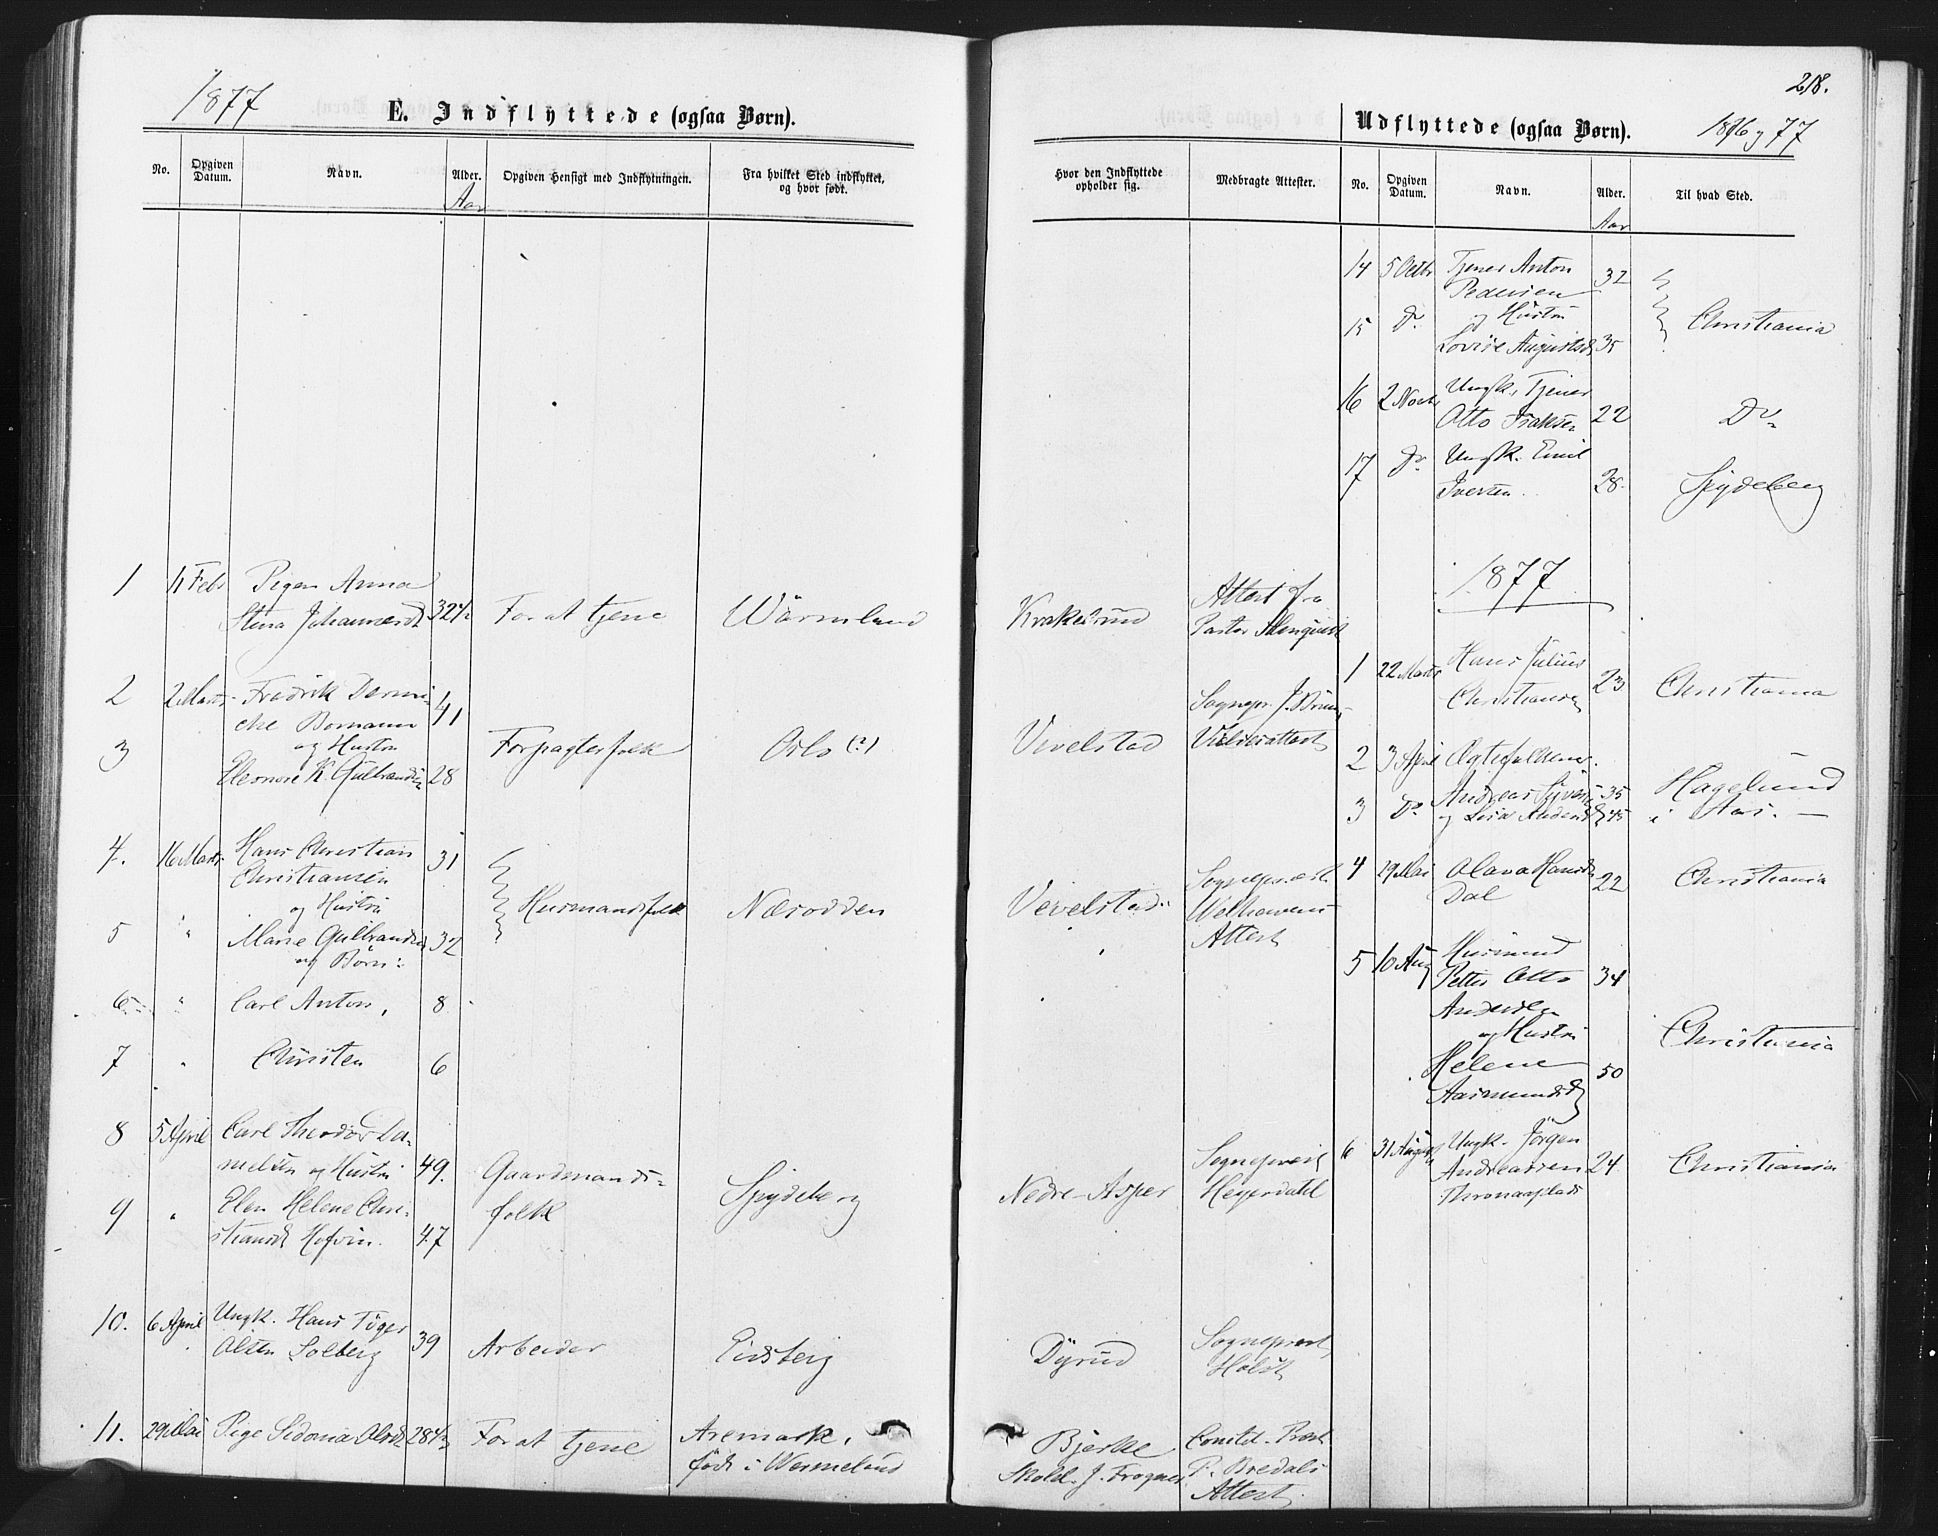 1877
E. Indflyttede (ogsaa Børn).
No.
Opgiven Datum.
Navn.
Alder.
Aar
Opgiven Hensigt med Indflytningen.
Fra hvilket Sted indflyttet, og hvor født.
1 11 Febr Pigen Anna
Stina Johannesd 32 1/2 For at tjene Wärmland
2 2 Marts Fredrik
Bomann 41
og Hustru
3 Eleonore K. Gulbrands 28 Forpagterfolk Oslo (?)
4. 16 Marts Hans Christian 31
Christiansen
og Hustru Husmandsfolk Næsodden
5 " Marie Gulbrandsd 32
og Børn:
6 " Carl Anton, 8
7 " Christen 6
8 5 April Carl Theodor Da-
nielsen og Hustru 49. Gaardmands-
9 " Elen Helene Chri- folk Spydeberg
stiansd Hofvin. 47
10. 6 April Ungk. Hans Tøger
Olsen Solberg 39 Arbeider Eidsberg
11. 29 Mai Pige Sidonia Olsd 28 1/2 For at tjene Aremark,
født i Wermelund
218.
Udflyttede (ogsaa Børn).
1876 og 77
Hvor den Indflyttede opholder sig.
Medbragte Attester.
No.
Opgiven Datum.
Navn.
Alder.
Aar
Til hvad Sted.
14 5 Octbr Tjener Anton 32
Pedersen
og Hustru
15 Do Lovise Augustsd 35 Christiania
16 2 Novbr Ungk. Tjener
Otto Isaksen 22 Do
17 Do Ungk. Emil
Iversen 28. Spydeberg
Krakesrud
Attest fra
Pastor
1877
1 22 Marts Hans Julius
Christiansen 23 Christiania
Vevelstad
Sognepr. J. Bruun
Vielsesattest
2 3 April Ægtefolkene
Andreas 35 Hagelund
3 Do og Lise 45 i Aas.
Vevelstad
Sognepræst
Welhavens
Attest
4 29 Mai Olava Hansd
Dal 22 Christiania
5 10 Aug Husmand
Petter Otto 34
Andersen
og Hustru
Helene 50 Christiania
Aasmundsd
Nedre-Asper
Sognepræst
Heyerdahl
6 31 August Ungk. Jörgen
Andreassen 24 Christiania
Dyrud
Sognepræst
Holst
Bjerke
Skold. J. Frogner
Constd. Præst
P. Bredals
Attest